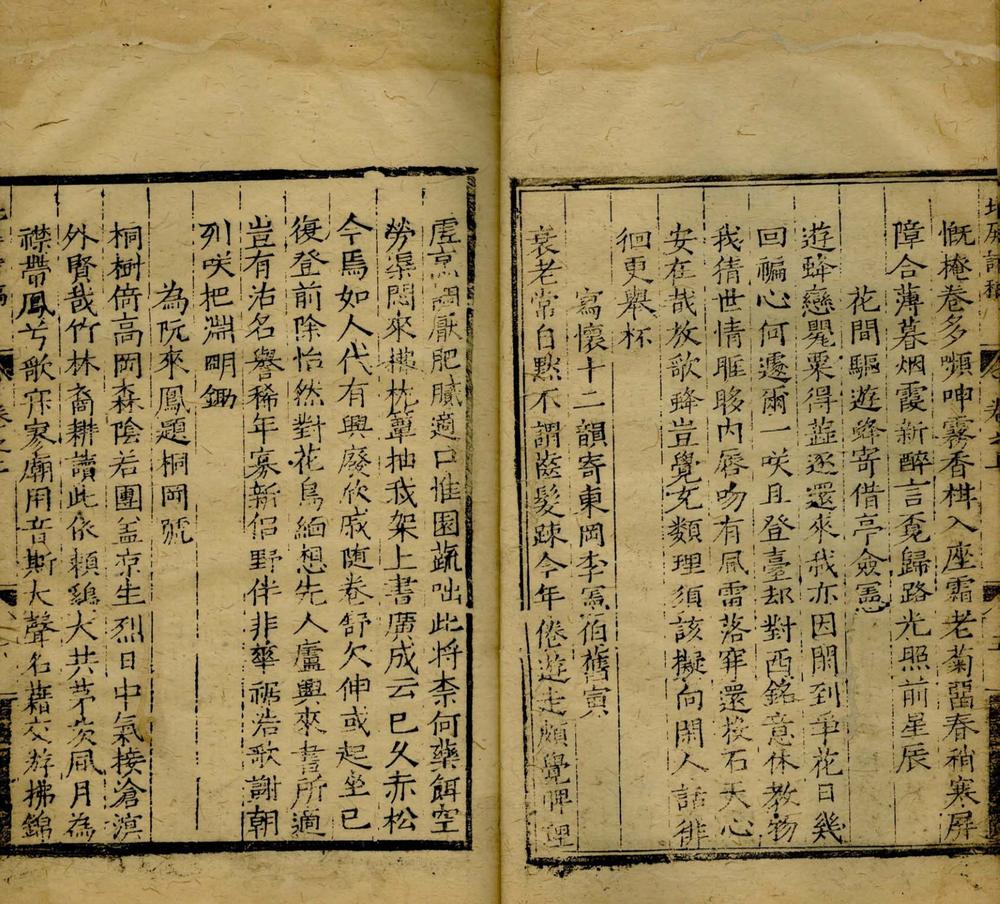 慨掩卷多嚬呻霧香棋入座霜老菊畱春稍寒屏
障合薄暮烟霞新醉言覔歸路光照前星辰
花間驅遊蜂寄借亭僉憲
遊蜂戀罌粟得蘂逐還來我亦因閑到爭花日幾
回褊心何遽爾一咲且登臺却對西銘意休教物
我猜世情睚眵內唇吻有風雷落穽還投石天心
安在哉放歌蜂豈覺女類理須該擬向閑人話徘
徊更舉杯
寫懷十二韻寄東岡李憲伯舊寅
衰老常自黙不謂蒼髮踈今年倦遊走頗覺脾理
虛烹調厭肥膩適口惟園蔬咄此將柰何藥餌空
勞渠悶來攤枕簟抽我架上書廣成云已久赤松
今焉如人代有興廢欣戚隨卷舒欠伸或起坐已
復登前除怡然對花鳥緬想先人廬興來書所適
豈有沽名譽稀年寡新侶野伴非華裾浩歌謝朝
列咲把淵明鋤
為阮來鳳題桐岡號
桐樹倚高岡森陰若團盖京生烈日中氣接滄溟
外賢哉竹林裔耕讀此依賴鷄犬共茅茨風月為
襟帶鳳兮歌寂寥廟用音斯大聲名藉交游拂錦